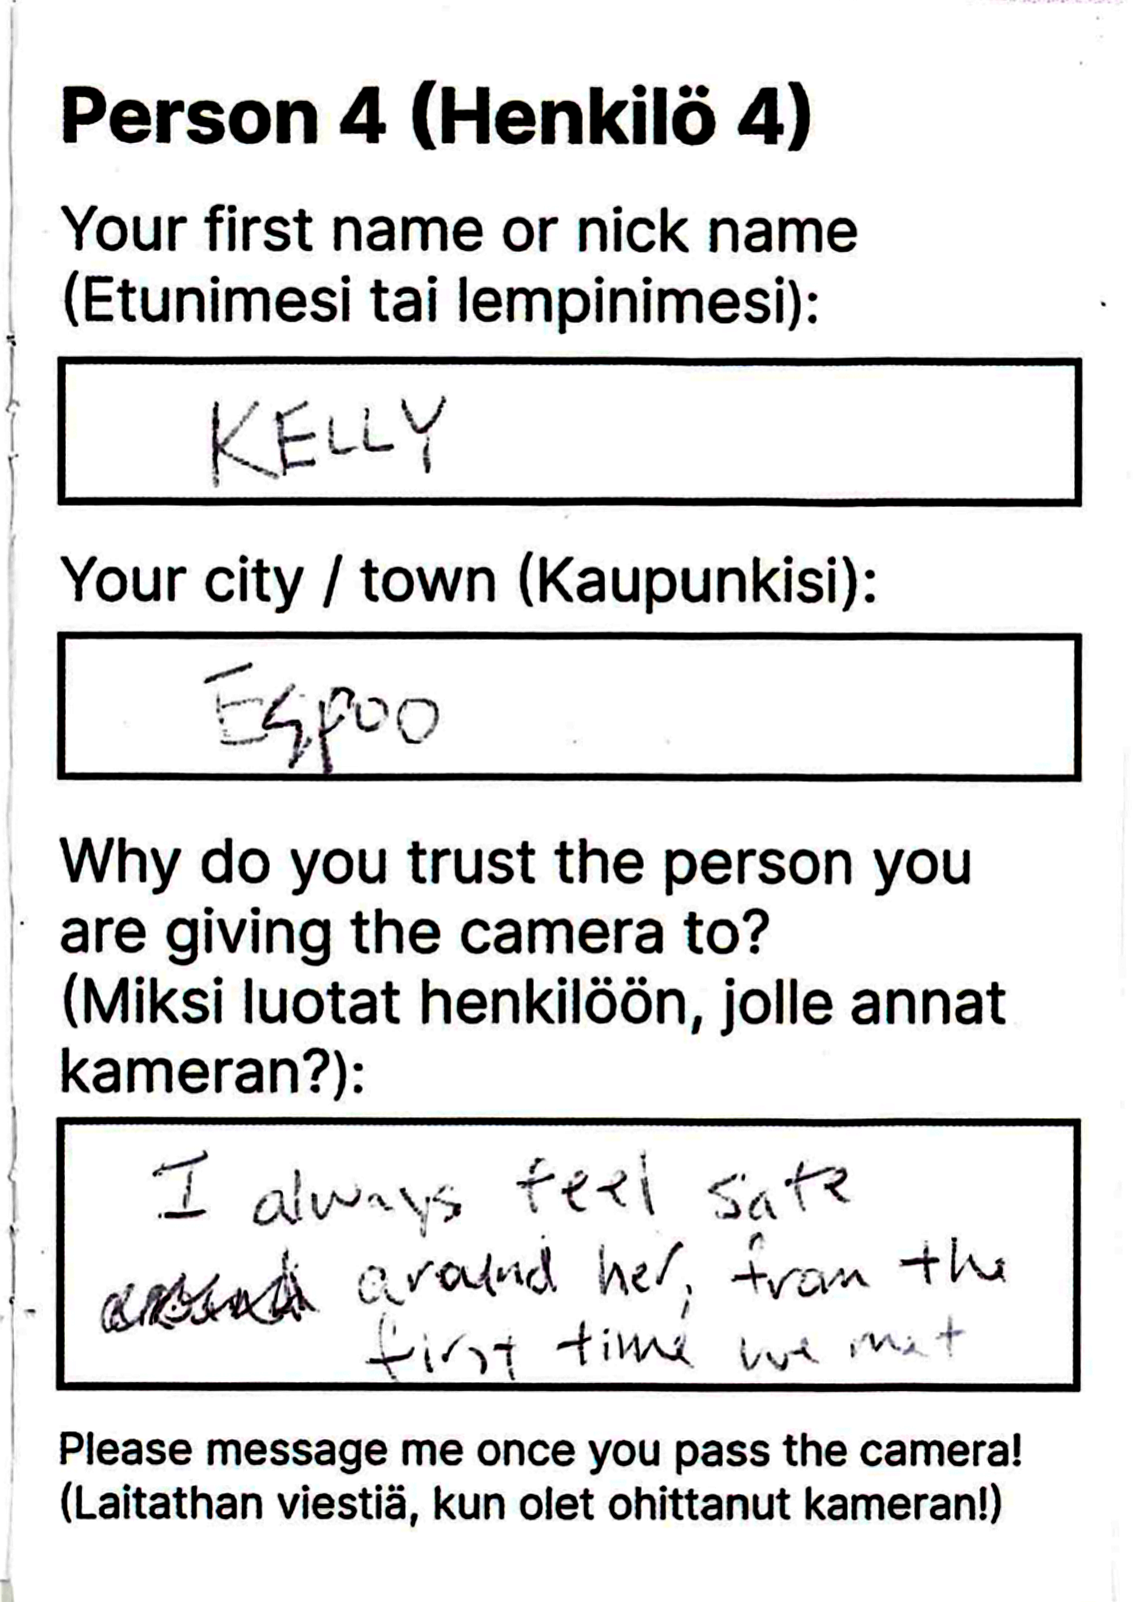 Person 4 (Henkilö 4)
Your first name or nick name
(Etunimesi tai lempinimesi):
KELLY
Your city / town (Kaupunkisi):
Espoo
Why do you trust the person you
are giving the camera to?
(Miksi luotat henkilöön, jolle annat
kameran?):
I always feel safe
around her, from the
first time we met
Please message me once you pass the camera!
(Laitathan viestiä, kun olet ohittanut kameran!)